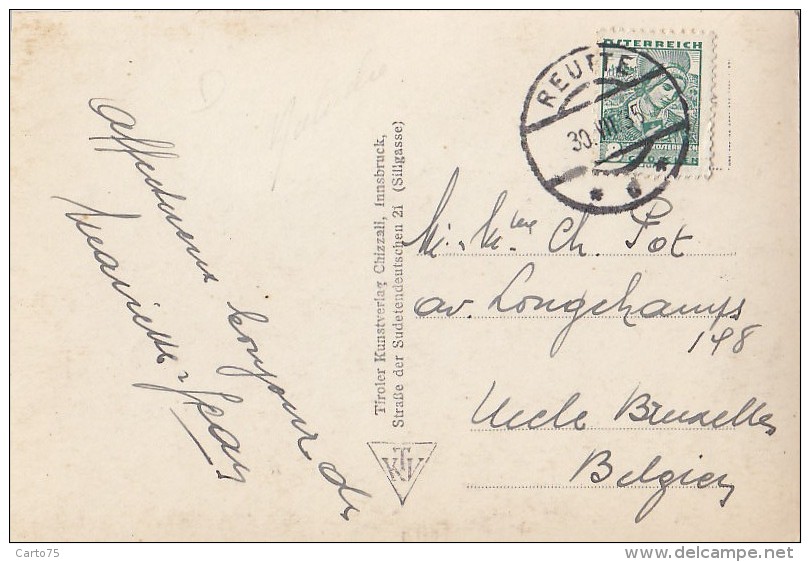 Affectueux bonjour de
Marielle & Jean
Tiroler Kunstverlag Chizzali, Innsbruck,
Straße der Sudetendeutschen 21 (Sillgasse)
KTV
ÖSTERREICH
REUTTE
30.VII.35
M. & Mme Ch. Pot
av. Longchamps
148
Uccle Bruxelles
Belgien
Carto75
www.delcampe.net